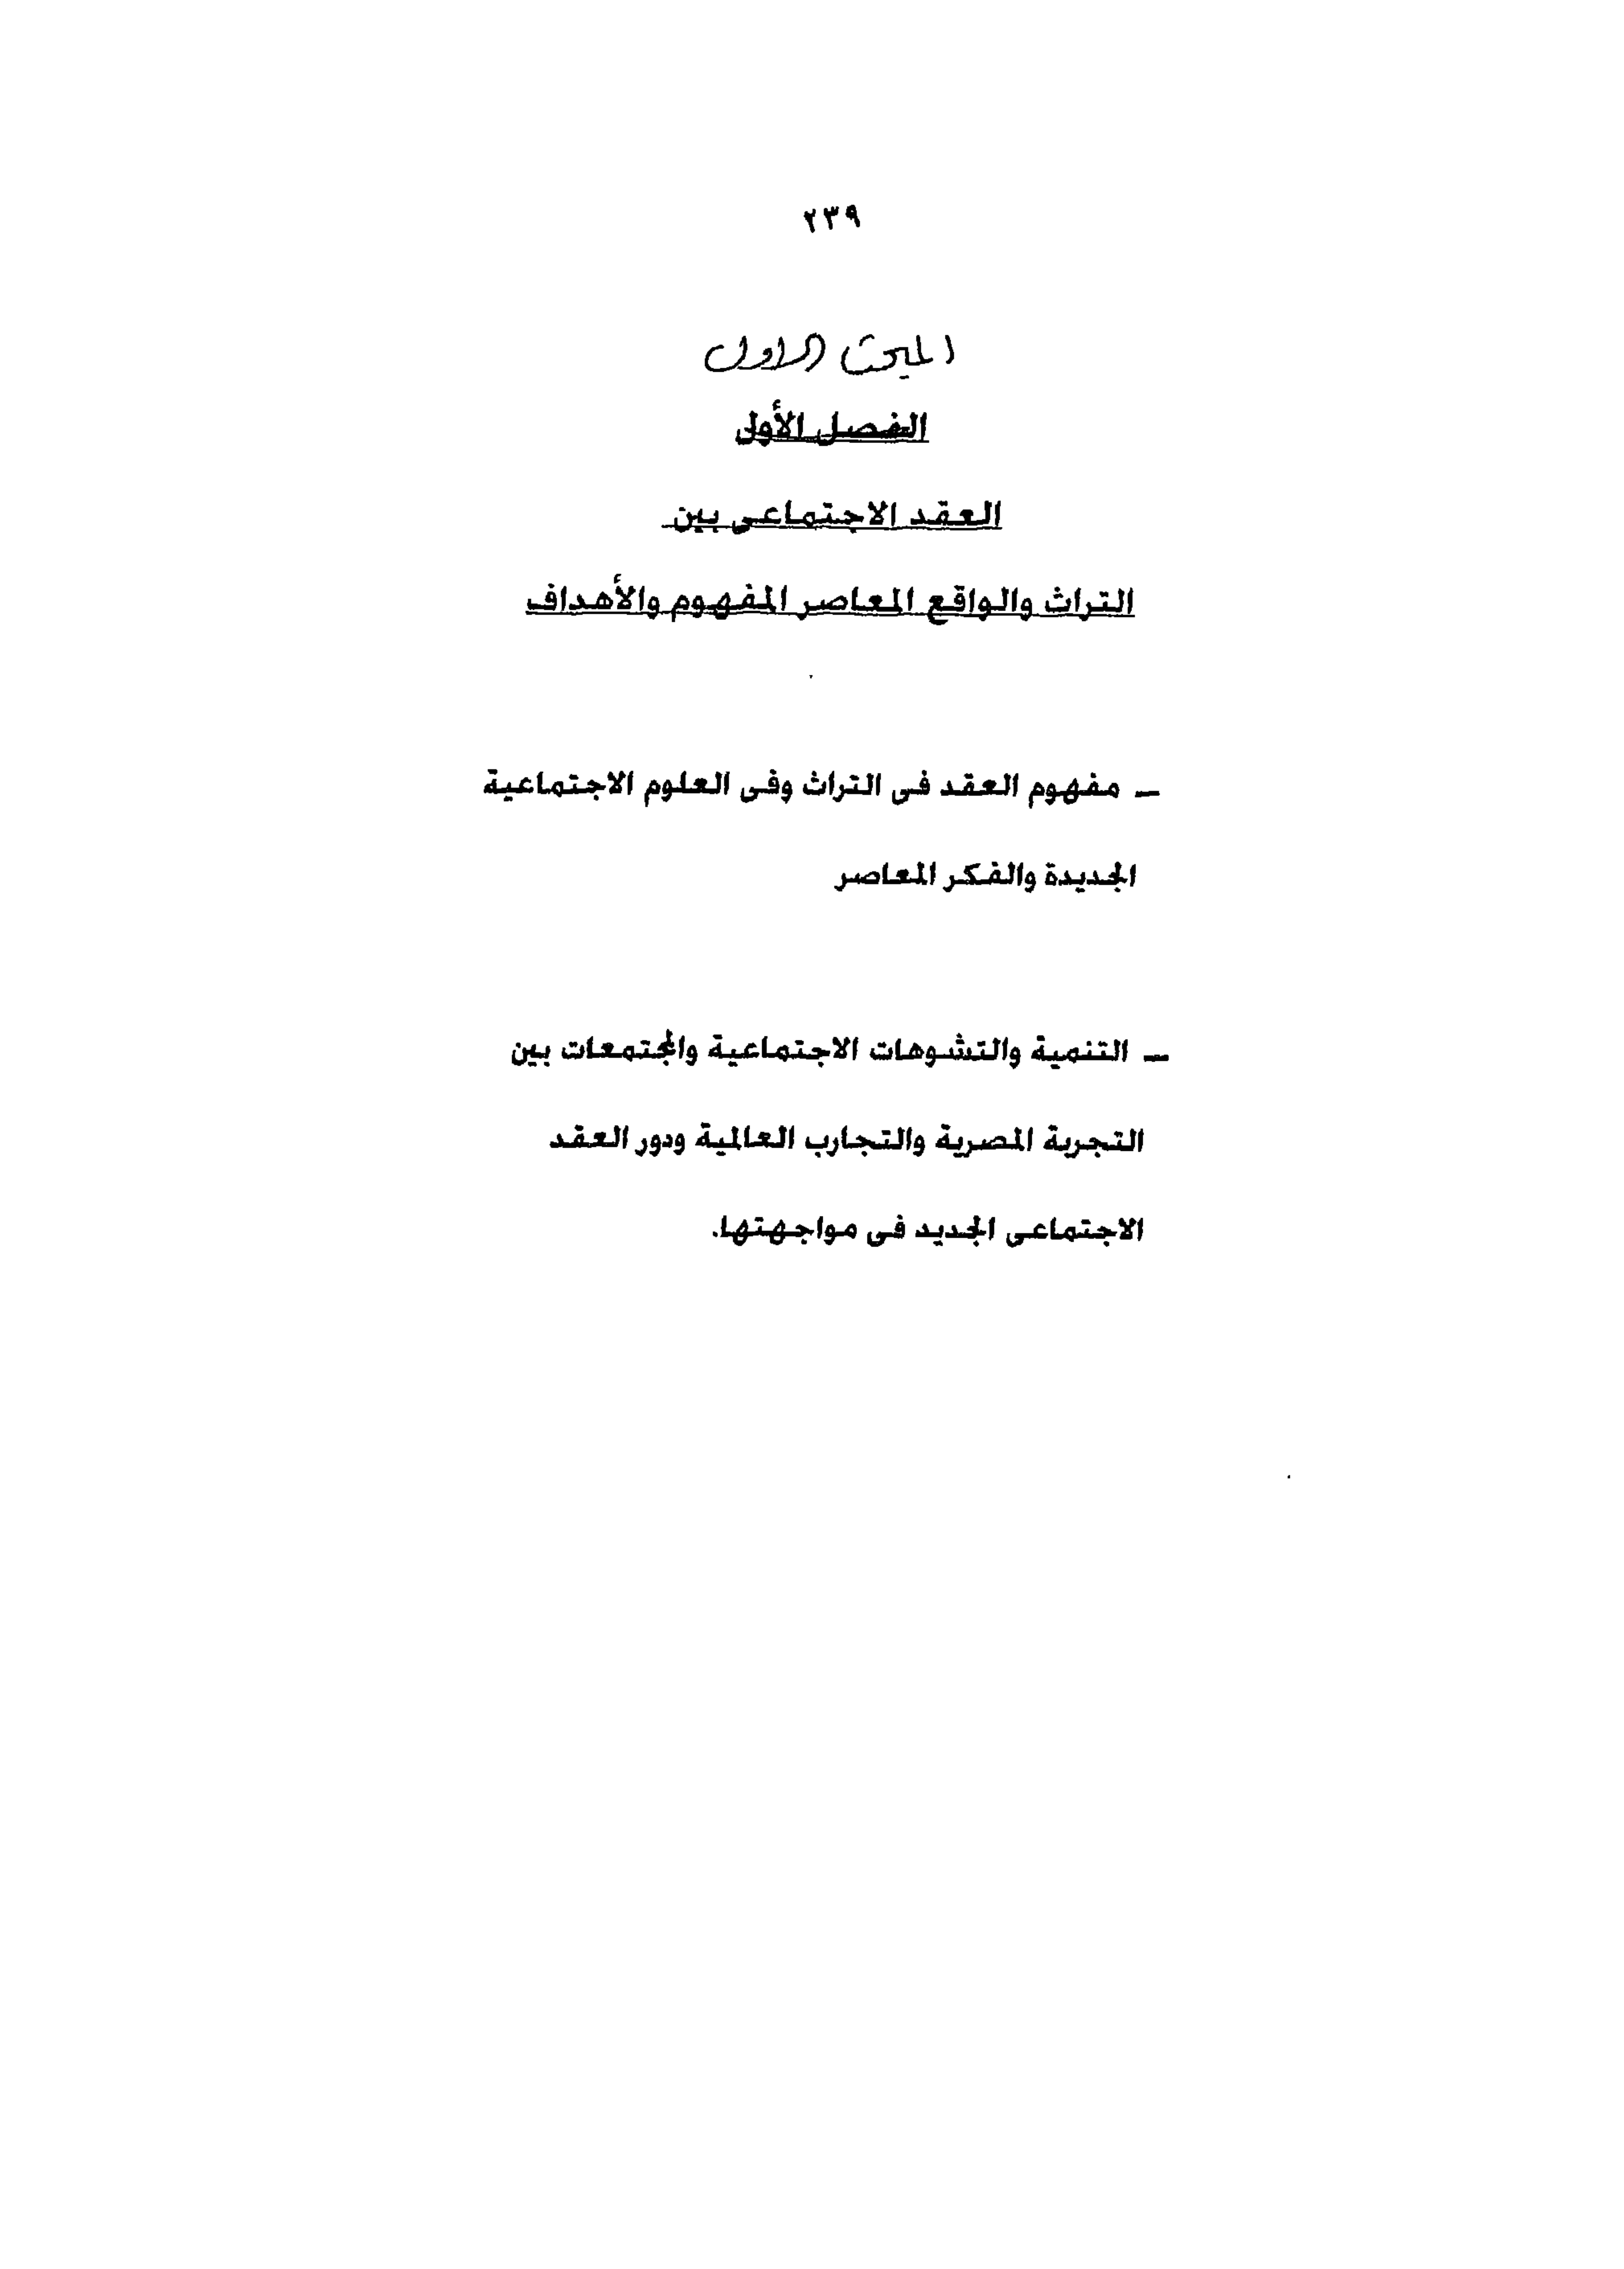 ٢٣٩
المبحث الاول
الفصل الأول
العقد الاجتماعى بين
التراث والواقع المعاصر المفهوم والأهداف
ـ مفهوم العقد فى التراث وفى العلوم الاجتماعية
الجديدة والفكر المعاصر
ـ التنمية والتشوهات الاجتماعية والمجتمعات بين
التجربة المصرية والتجارب العالمية ودور العقد
الاجتماعى الجديد فى مواجهتها.